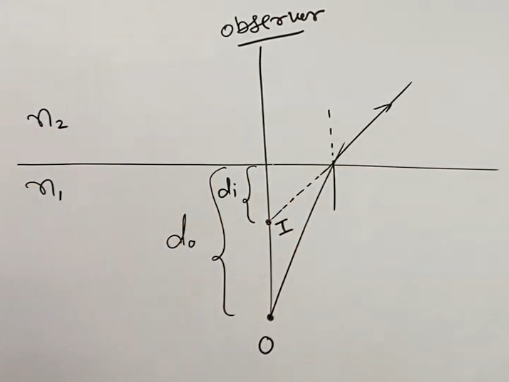 observer
n₂
n₁
di
do
I
O